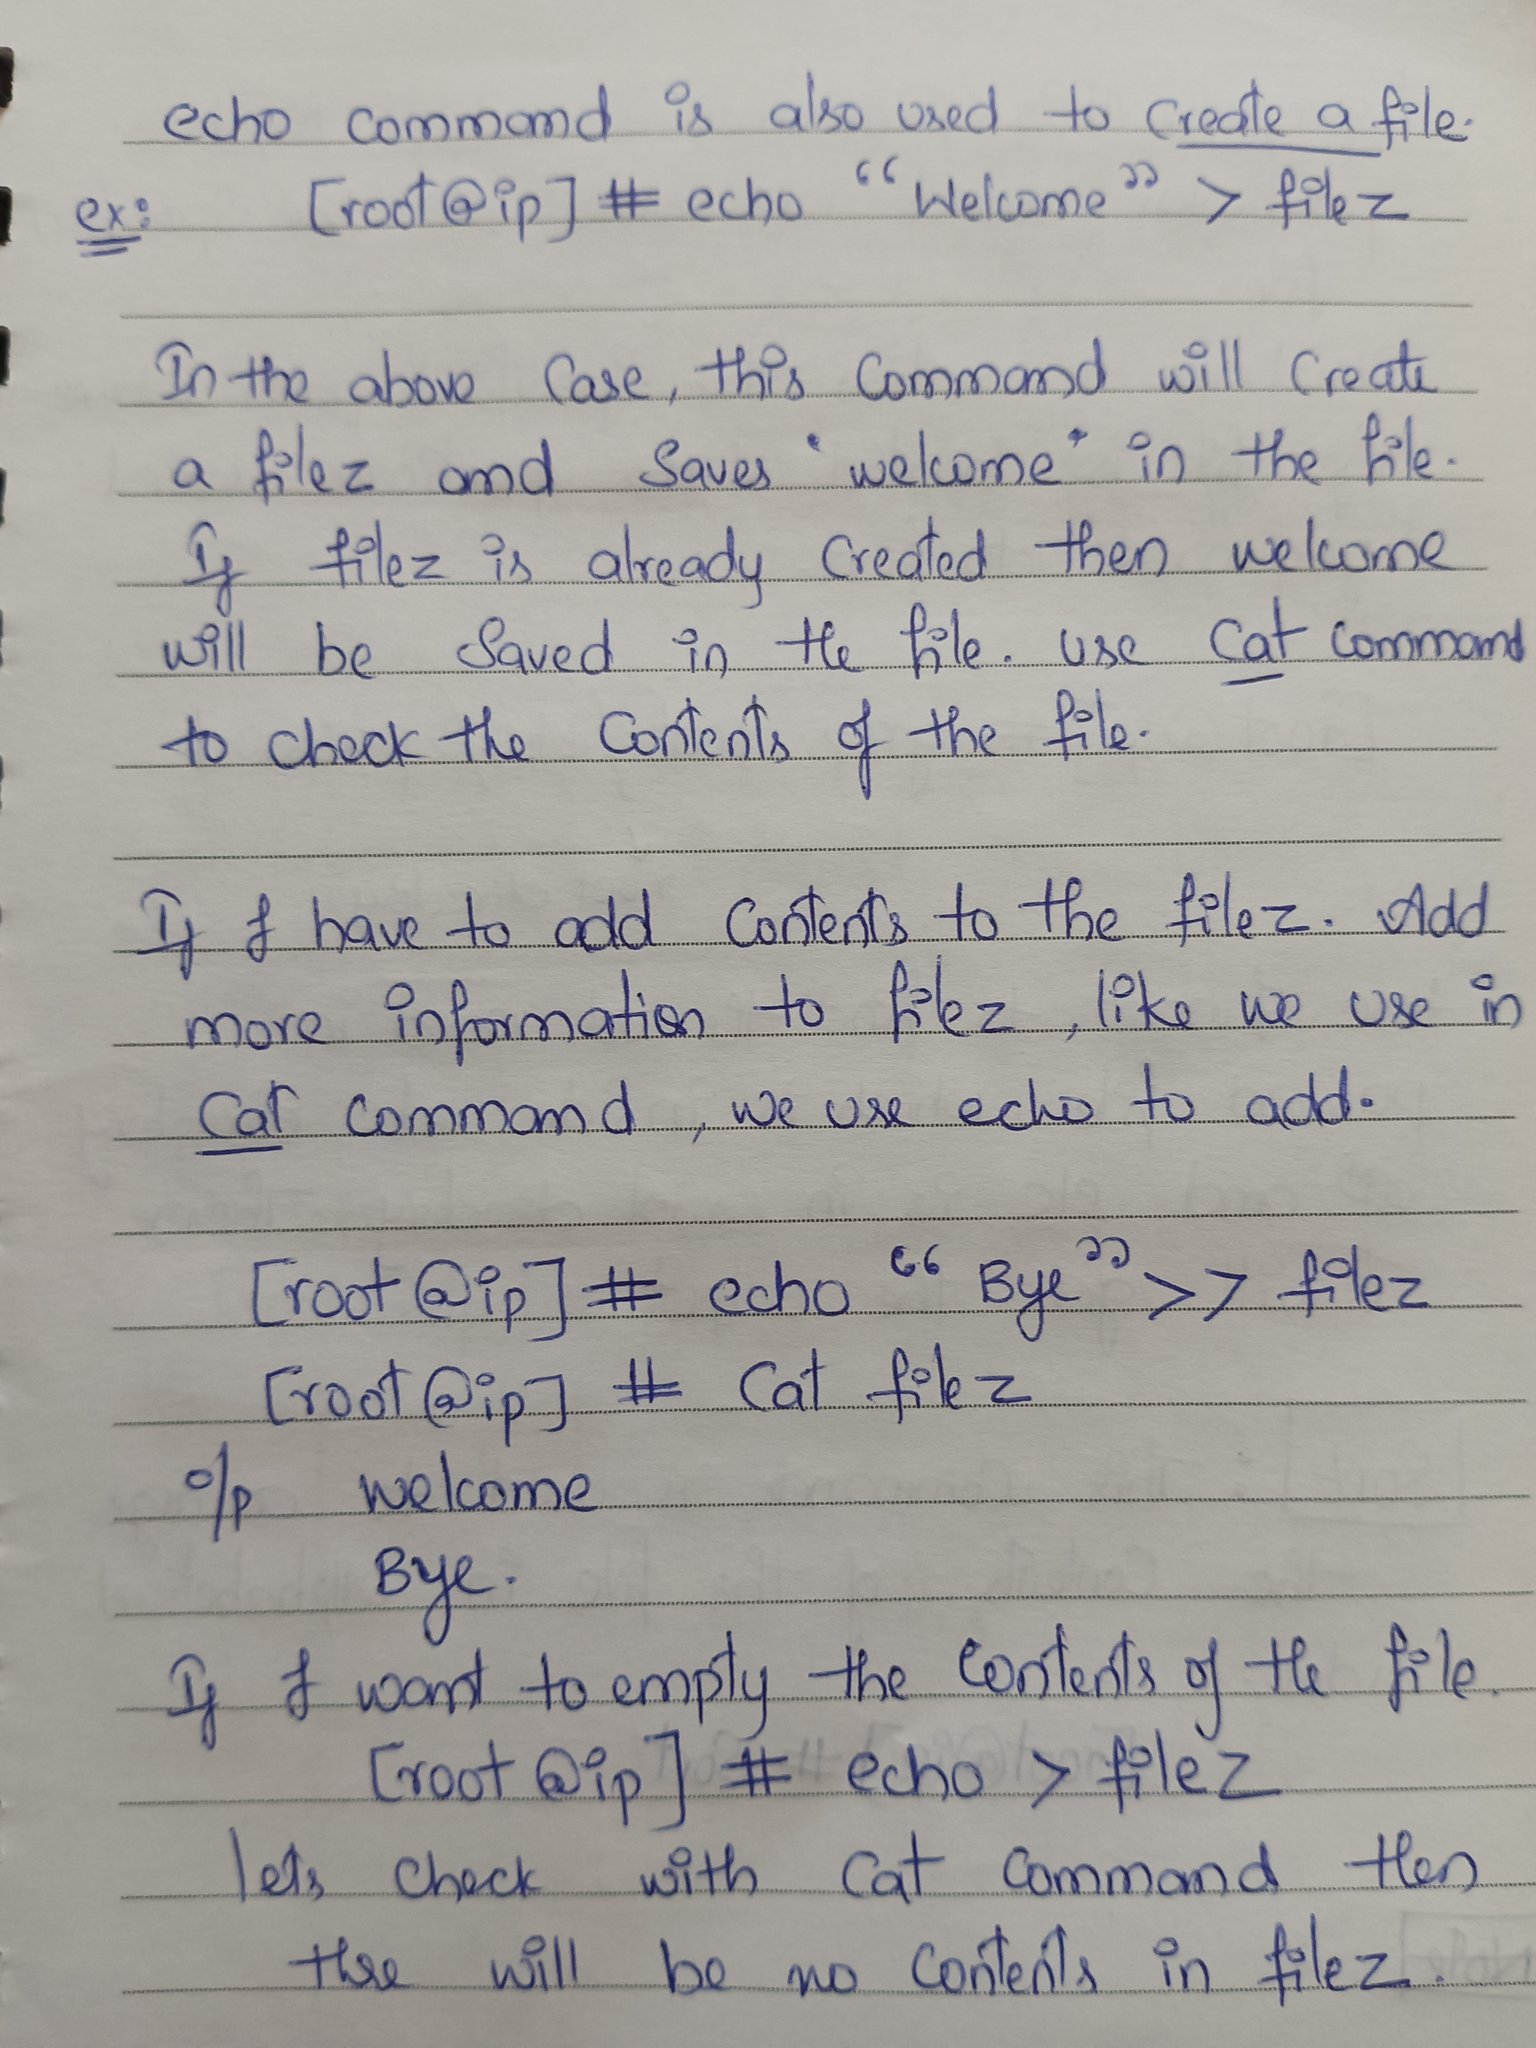 echo command is also used to create a file.
ex: [root@ip] # echo “Welcome” > filez
In the above case, this command will create
a filez and saves "welcome" in the file.
If filez is already created then welcome
will be saved in the file. use cat command
to check the contents of the file.
If I have to add contents to the filez. Add
more information to filez, like we use in
cat command, we use echo to add.
[root@ip] # echo “Bye” >> filez
[root@ip] # cat filez
o/p welcome
Bye.
If I want to empty the contents of the file.
[root@ip] # echo > filez
lets check with cat command then
thre will be no contents in filez.